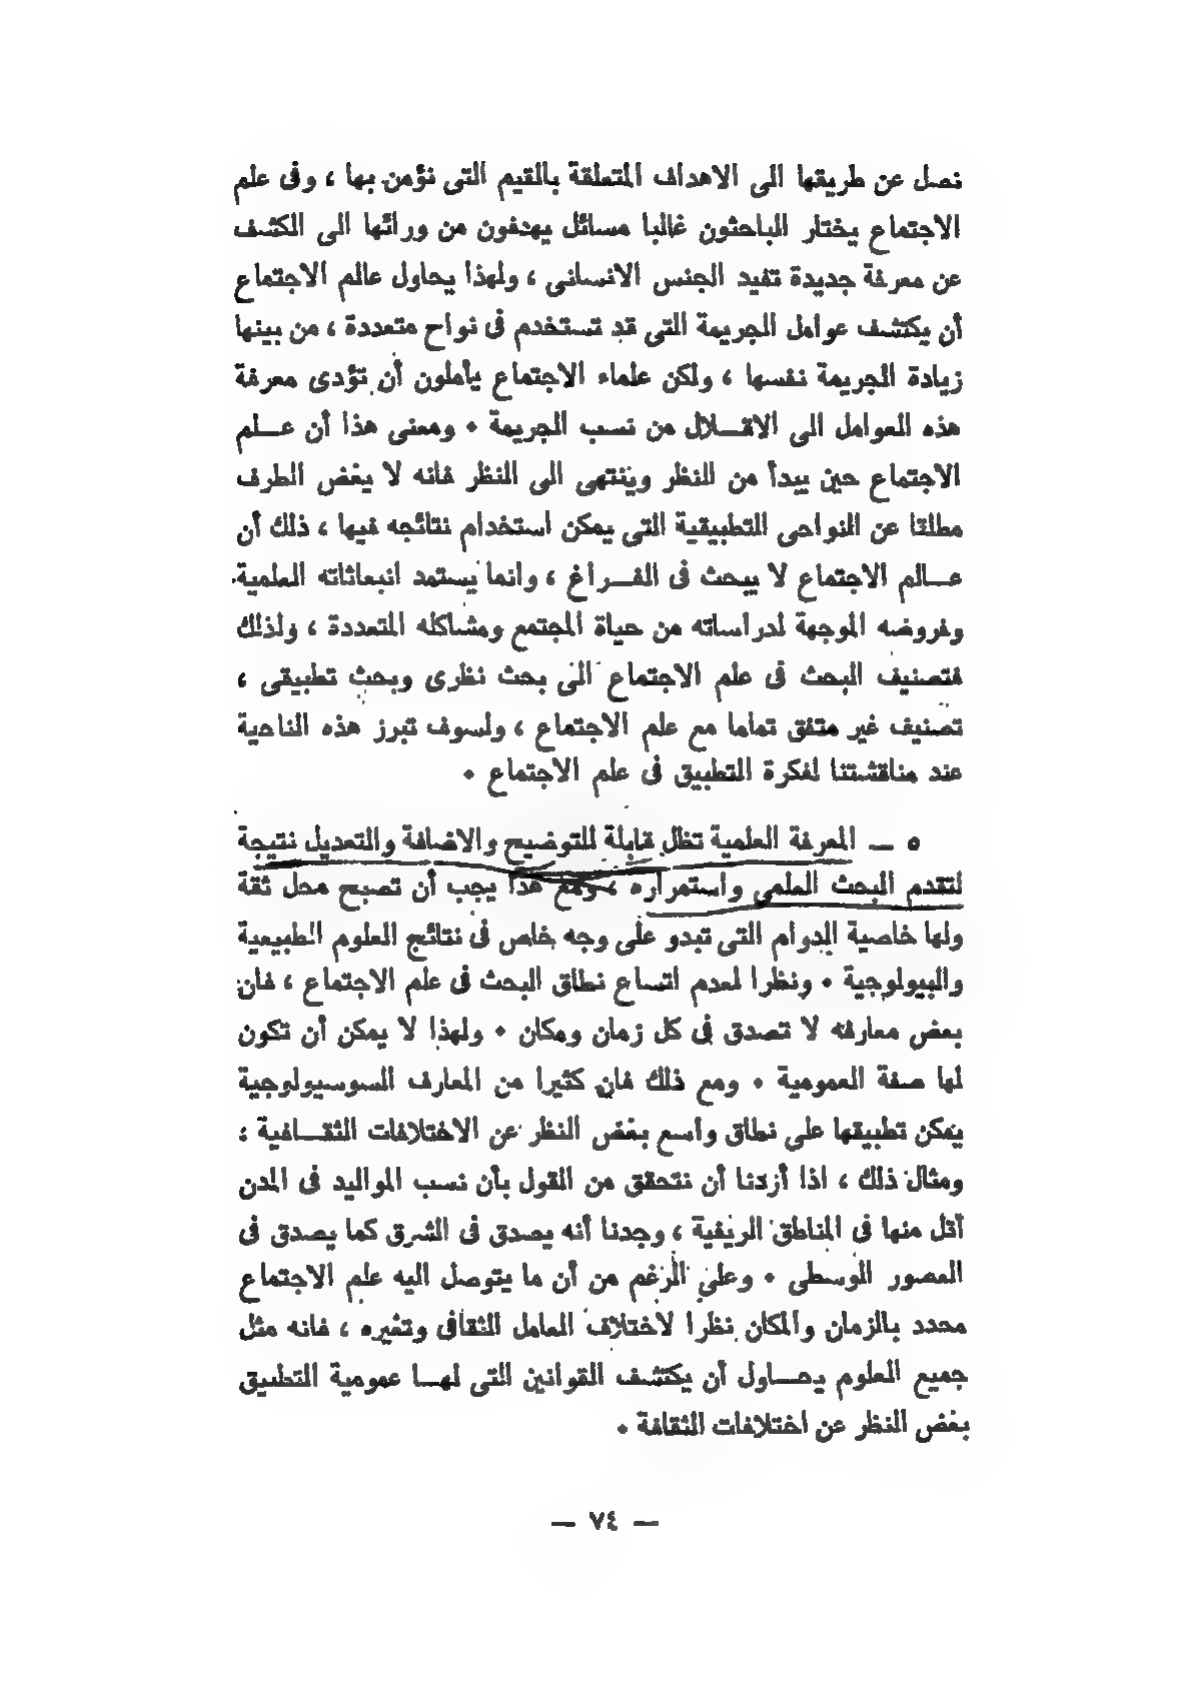 نصل عن طريقها الى الاهداف المتعلقة بالقيم التى نؤمن بها ، وفى علم
الاجتماع يختار الباحثون غالبا مسائل يهدفون من ورائها الى الكشف
عن معرفة جديدة تفيد الجنس الانسانى ، ولهذا يحاول عالم الاجتماع
أن يكتشف عوامل الجريمة التى قد تستخدم فى نواح متعددة ، من بينها
زيادة الجريمة نفسها ، ولكن علماء الاجتماع يأملون أن تؤدى معرفة
هذه العوامل الى الاقـــلال من نسب الجريمة ٠ ومعنى هذا أن عـــلم
الاجتماع حين يبدأ من النظر وينتهى الى النظر فانه لا يغض الطرف
مطلقا عن النواحى التطبيقية التى يمكن استخدام نتائجه فيها ، ذلك أن
عـــالم الاجتماع لا يبحث فى الفـــراغ ، وانما يستمد انبعاثاته العلمية
وفروضه الموجهة لدراساته من حياة المجتمع ومشاكله المتعددة ، ولذلك
فتصنيف البحث فى علم الاجتماع الى بحث نظرى وبحث تطبيقى ،
تصنيف غير متفق تماما مع علم الاجتماع ، ولسوف تبرز هذه الناحية
عند مناقشتنا لفكرة التطبيق فى علم الاجتماع ٠
٥ — المعرفة العلمية تظل قابلة للتوضيح والاضافة والتعديل نتيجة
لتقدم البحث العلمى واستمراره ، ومع هذا يجب أن تصبح محل ثقة
ولها خاصية الدوام التى تبدو على وجه خاص فى نتائج العلوم الطبيعية
والبيولوجية ٠ ونظرا لعدم اتساع نطاق البحث فى علم الاجتماع ، فان
بعض معارفه لا تصدق فى كل زمان ومكان ٠ ولهذا لا يمكن أن تكون
لها صفة العمومية ٠ ومع ذلك فان كثيرا من المعارف السوسيولوجية
يمكن تطبيقها على نطاق واسع بغض النظر عن الاختلافات الثقـــافية ،
ومثال ذلك ، اذا أردنا أن نتحقق من القول بأن نسب المواليد فى المدن
أقل منها فى المناطق الريفية ، وجدنا أنه يصدق فى الشرق كما يصدق فى
العصور الوسطى ٠ وعلى الرغم من أن ما يتوصل اليه علم الاجتماع
محدد بالزمان والمكان نظرا لاختلاف العامل الثقافى وتغيره ، فانه مثل
جميع العلوم يحـــاول أن يكتشف القوانين التى لهـــا عمومية التطبيق
بغض النظر عن اختلافات الثقافة ٠
— ٧٤ —